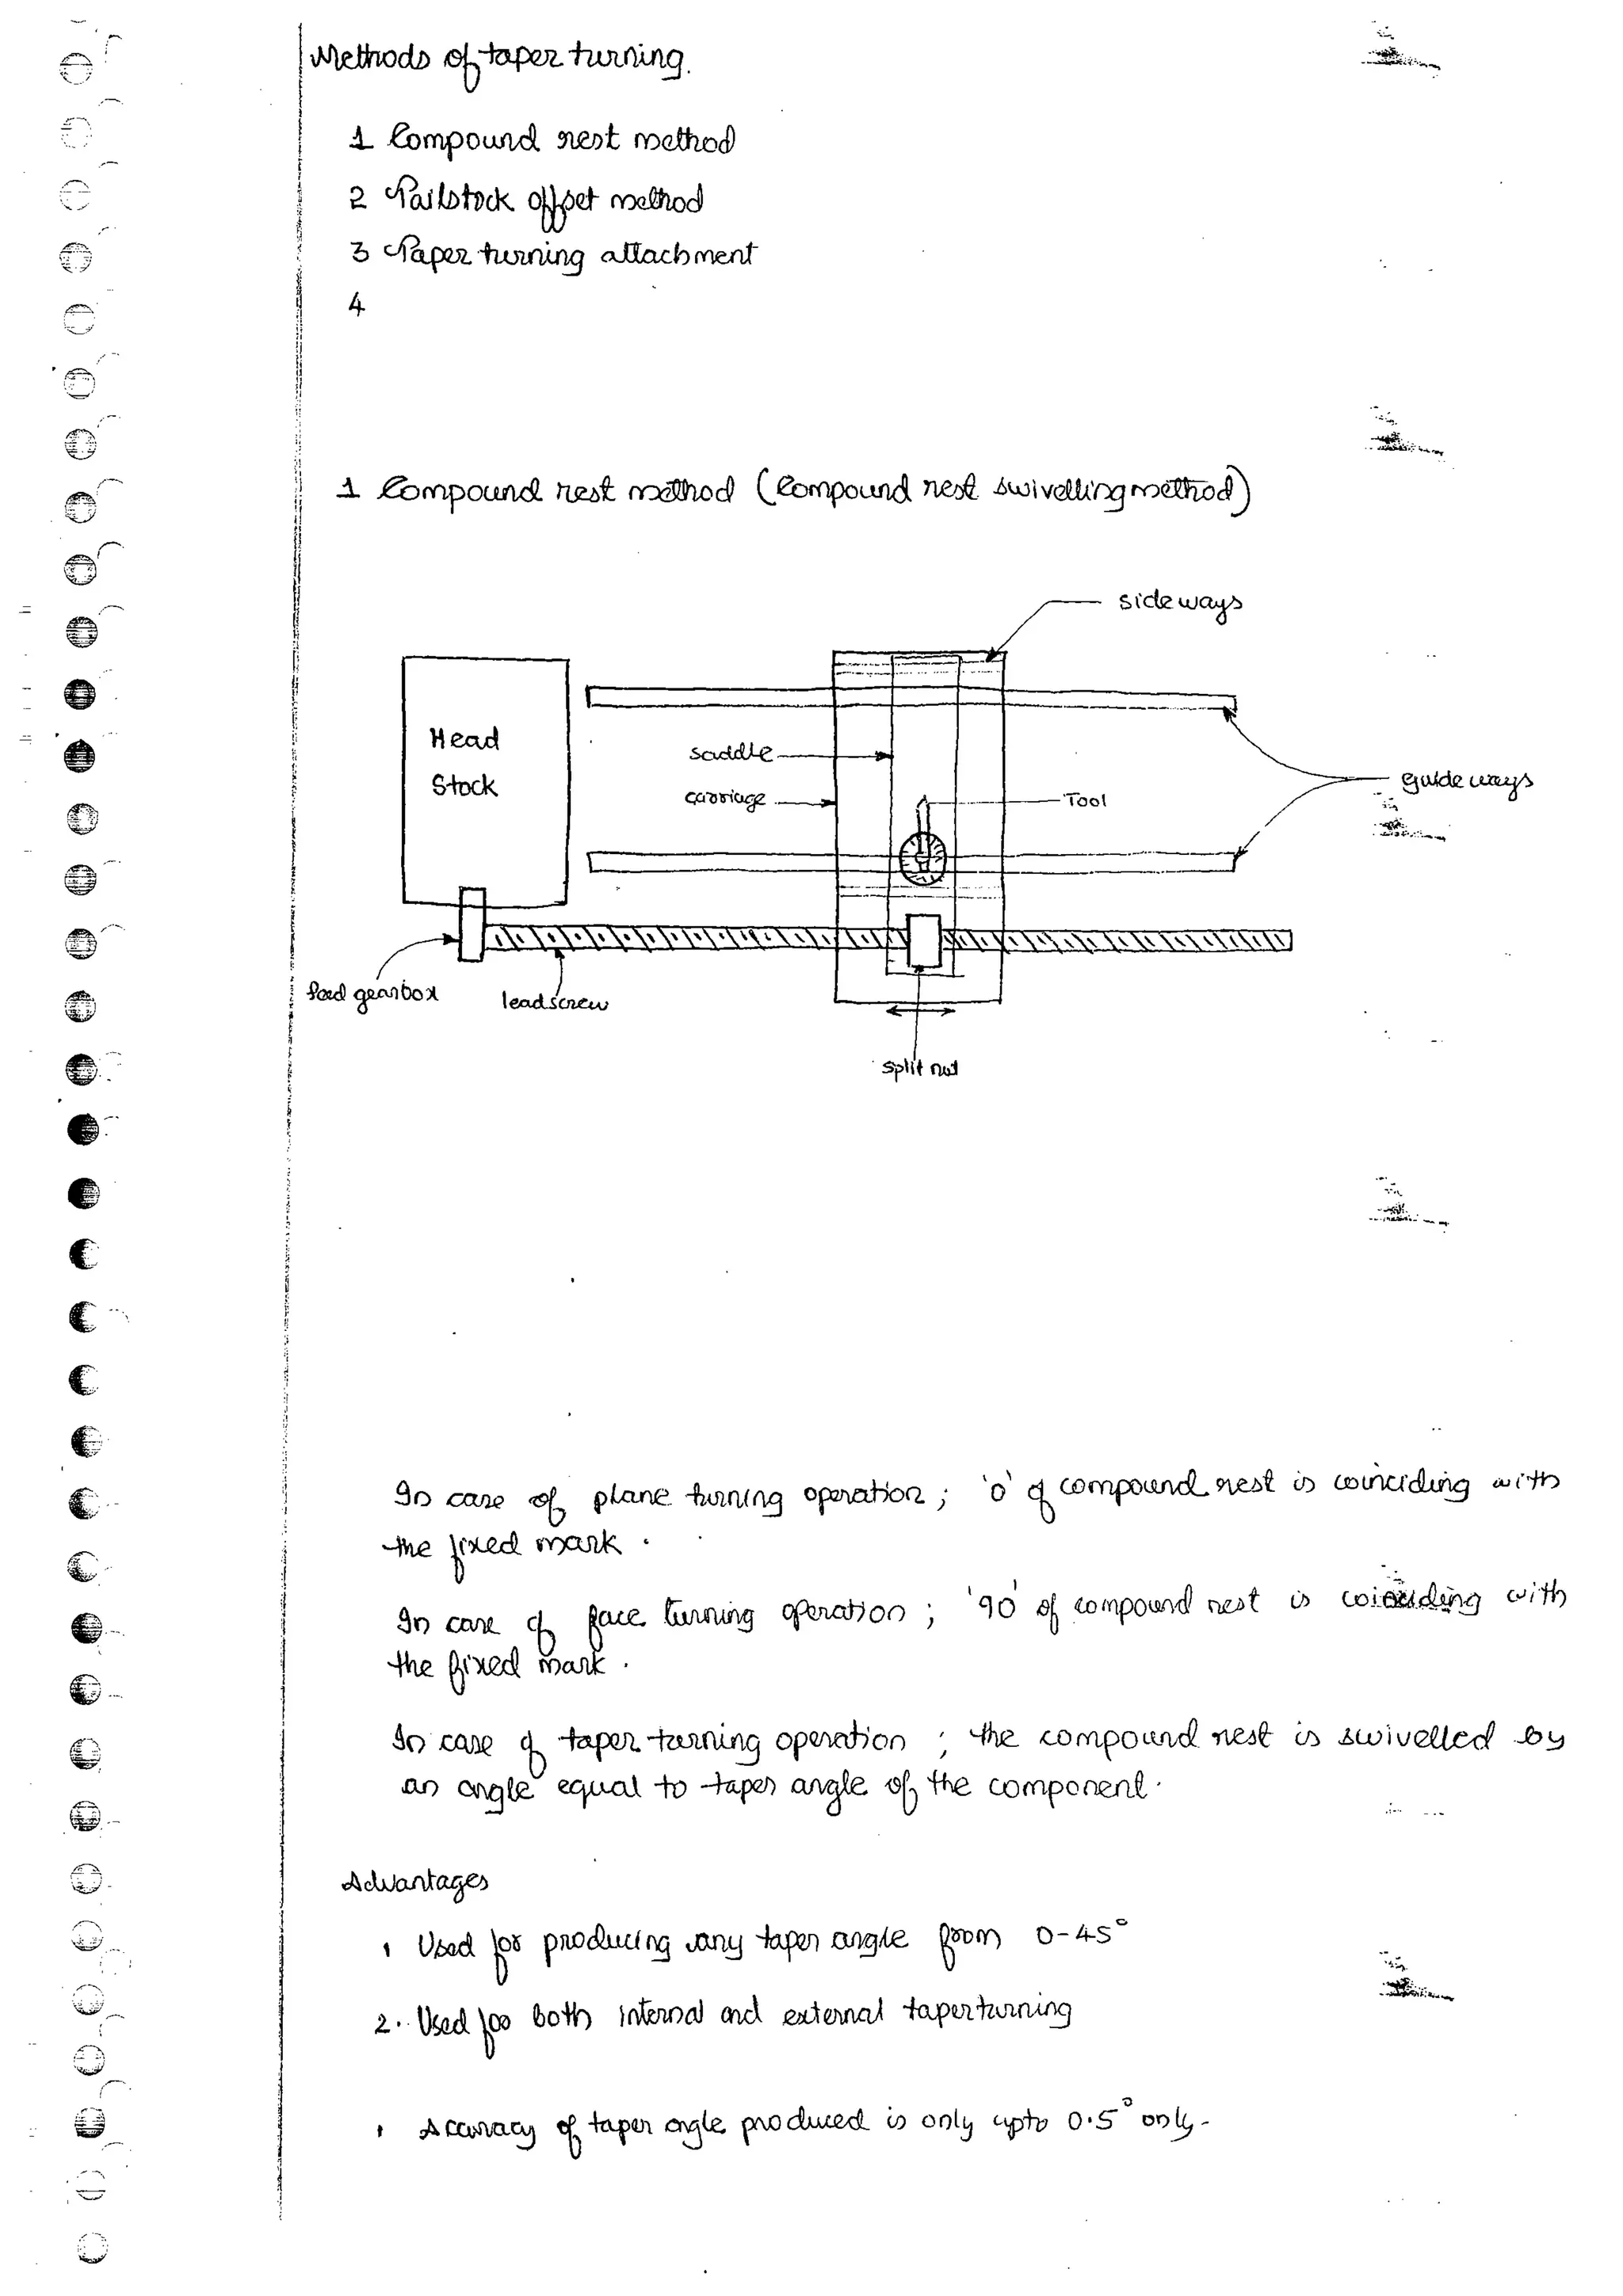 Methods of taper turning.
1 Compound rest method
2 Tailstock offset method
3 Taper turning attachment
4
1 Compound rest method (Compound rest swivelling method)
sideways
Head
Stock
saddle
carriage
Tool
guide ways
feed gearbox
leadscrew
split nut
In case of plane turning operation; '0' of compound rest is coinciding with
the fixed mark.
In case of face turning operation; '90' of compound rest is coinciding with
the fixed mark.
In case of taper turning operation; the compound rest is swivelled by
an angle equal to taper angle of the component.
Advantages
1 Used for producing any taper angle from 0-45°
2. Used for both internal and external taper turning
1 Accuracy of taper angle produced is only upto 0.5° only.